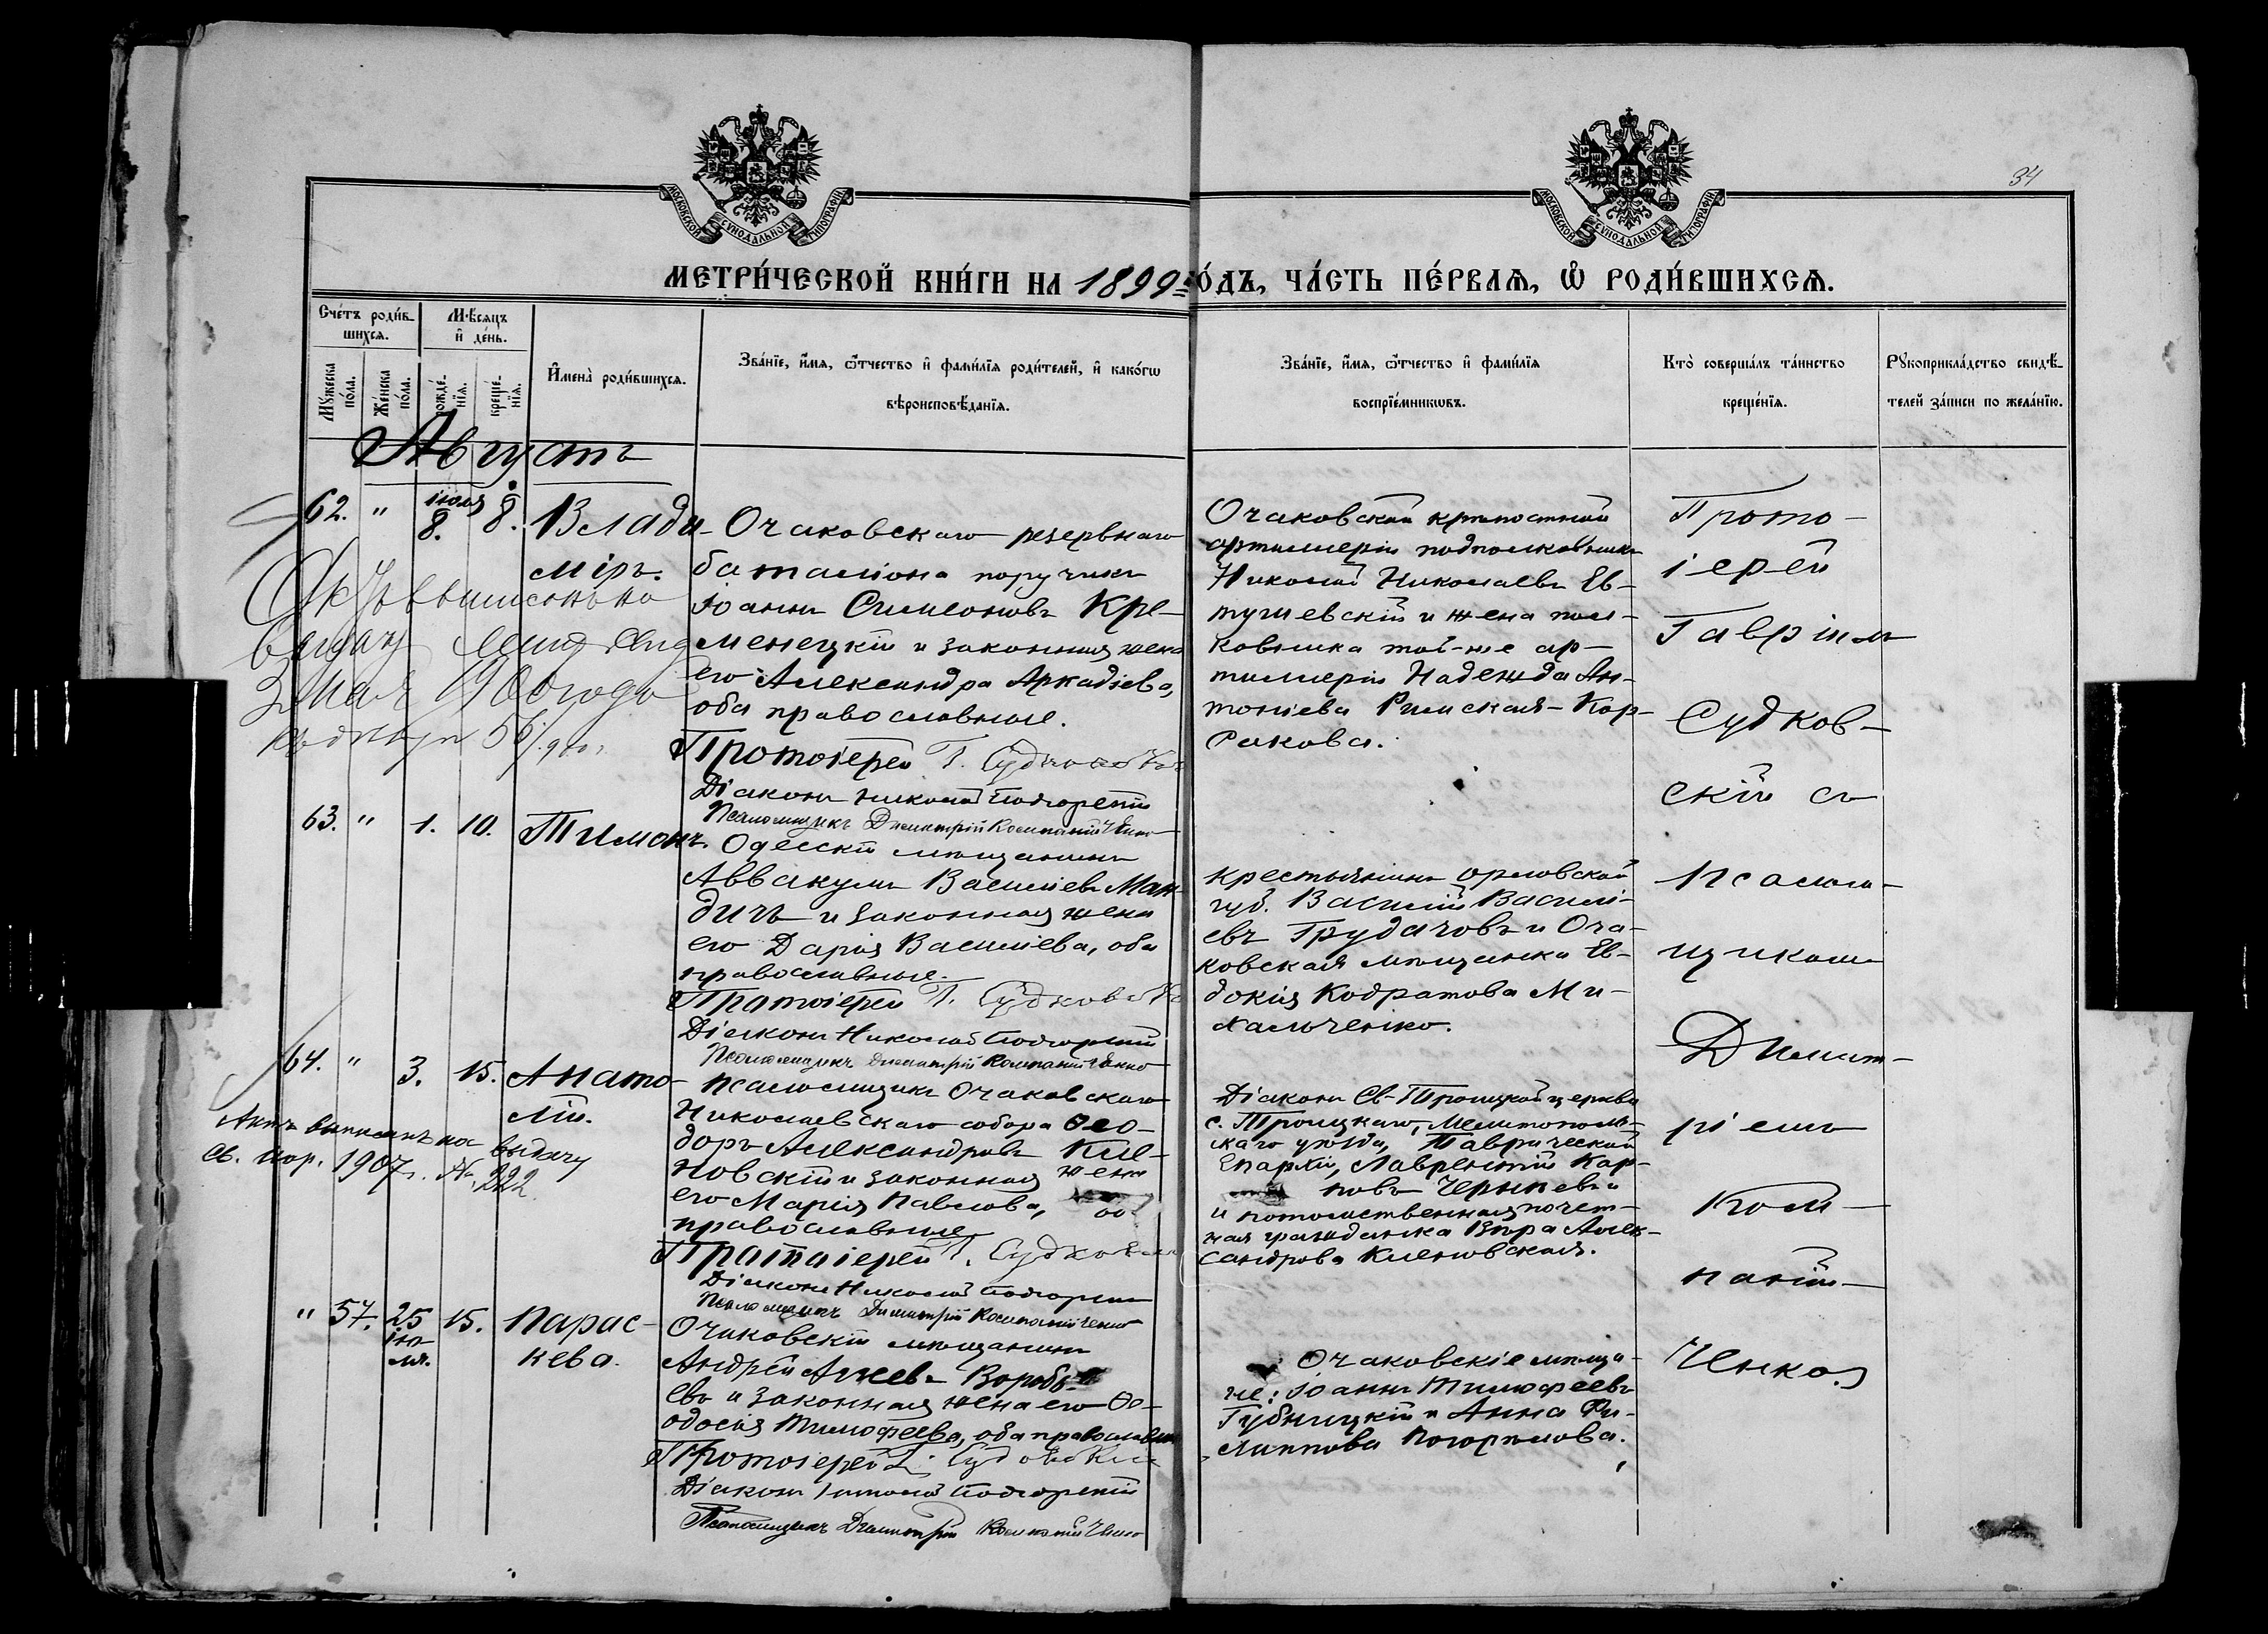 34
МОСКОВСКОЙ СУНОДАЛЬНОЙ ТИПОГРАФІИ
МОСКОВСКОЙ СУНОДАЛЬНОЙ ТИПОГРАФІИ
МЕТРИ́ЧЕСКОЙ КНИ́ГИ НА 1899 = ГО́ДЪ, ЧА́СТЬ ПЕ́РВАѦ, Ѽ РОДИ́ВШИХСѦ.
Сче́тъ роди́в-
шихсѧ.
Мꙋ́жеска
по́ла.
Же́нска
по́ла.
М҃ѣсѧцъ
и҆ де́нь.
рожде́-
нїѧ.
креще́-
нїѧ.
И҆мена̀ роди́вшихсѧ.
Зва́нїе, и҆́мѧ, ѻ҆́тчество и҆ фами́лїѧ роди́телей, и҆ како́гѡ
вѣроисповѣ́данїѧ.
Зва́нїе, и҆́мѧ, ѻ҆́тчество и҆ фами́лїѧ
воспрїе́мникѡвъ.
Кто̀ соверша́лъ та́инство
креще́нїѧ.
Рꙋкоприкла́дство свидѣ́-
телей за́писи по жела́нїю.
Августъ
62. " іюля 8. 8. Влади-
міръ.
Очаковскаго резервнаго
баталіона поручикъ
Іоаннъ Симеоновъ Кре-
менецкій и законная жена
его Александра Аркадіева,
оба православные.
Протоіерей Г. Судковскій
Діаконъ Николай Подгорскій
Псаломщикъ Димитрій Компанійченко
Очаковской крѣпостной
артиллеріи подполковникъ
Николай Николаевъ Ев-
тушевскій и жена пол-
ковника той-же ар-
тиллеріи Надежда Ан-
тоніева Римская-Кор-
сакова.
выдачу
Мая 1900 года
63. " 1. 10. Тимонъ.
Одесскій мѣщанинъ
Аввакумъ Васильевъ Ман-
дичъ и законная жена
его Дарія Васильева, оба
православные.
Протоіерей Г. Судковскій
Діаконъ Николай Подгорскій
Псаломщикъ Димитрій Компанійченко
крестьянинъ Орловской
губ. Василій Василі-
евъ Грудачовъ и Оча-
ковская мѣщанка Ев-
докія Кодратова Ми-
хальченко.
64. " 3. 15. Анато-
лій.
Актъ выписанъ на выдачу
св. мар. 1907 г. № 222.
Псаломщикъ Очаковскаго
Николаевскаго собора Ѳео-
доръ Александровъ Кле-
новскій и законная жена
его Марія Павлова, оба
православные
Протоіерей Г. Судковскій
Діаконъ Николай Подгорскій
Псаломщикъ Димитрій Компанійченко
Діаконъ Св-Троицкой церкви
с. Троицкаго, Мелитополь-
скаго уѣзда, Таврической
Епархіи, Лаврентій Кар-
повъ Чернѣевъ и
и потомственная почет-
ная гражданка Вѣра Алек-
сандрова Кленовская.
" 57. 25 іюля. 15. Парас-
кева.
Очаковскій мѣщанинъ
Андрей Воробь-
евъ и законная жена его Ѳе-
одосія Тимофеева, оба православные
Протоіерей Г. Судковскій
Діаконъ Николай Подгорскій
Псаломщикъ Димитрій Компанійченко
Очаковскіе мѣща-
не: Іоаннъ Тимофеевъ
Губницкій и Анна Фи-
липпова Погорѣлова.
Прото-
іерей
Гавріилъ
Судков-
скій съ
псалом-
щикомъ
Димит-
ріемъ
Ком-
паній-
ченко.